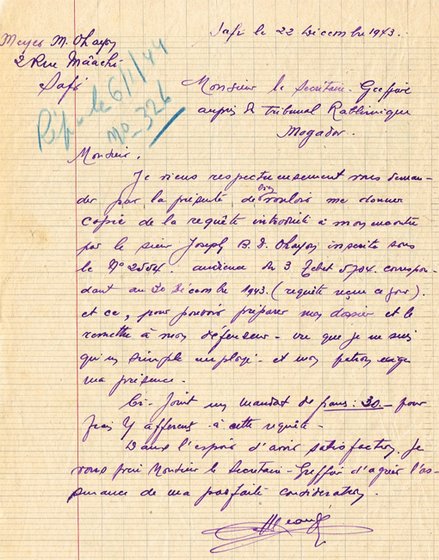 Safi le 22 Décembre 1943.
Meyer M. Ohayon
2 Rue Mâachi
Safi
Rép. le 6/1/44
N° 326
Monsieur le Secrétaire-Greffier
auprès du tribunal Rabbinique
Mogador.
Monsieur.
Je viens respectueusement vous deman-
der par la présente, de bien vouloir me donner
copie de la requête introduite à mon encontre
par le sieur Joseph B. D. Ohayon inscrite sous
le N° 2554. audience du 3 Tebet 5704. correspon-
dant au 30 Décembre 1943. (requête reçue ce jour).
et ce, pour pouvoir préparer mon dossier et le
remettre à mon défenseur - vu que je ne suis
qu'un simple employé - et mon patron exige
ma présence.
Ci-Joint un mandat de frans: 30.- pour
frais y afferent à cette requête -
Dans l'espoir d'avoir satisfaction, Je
vous prie Monsieur le Secrétaire-Greffier d'agréer l'as-
surance de ma parfaite considération.